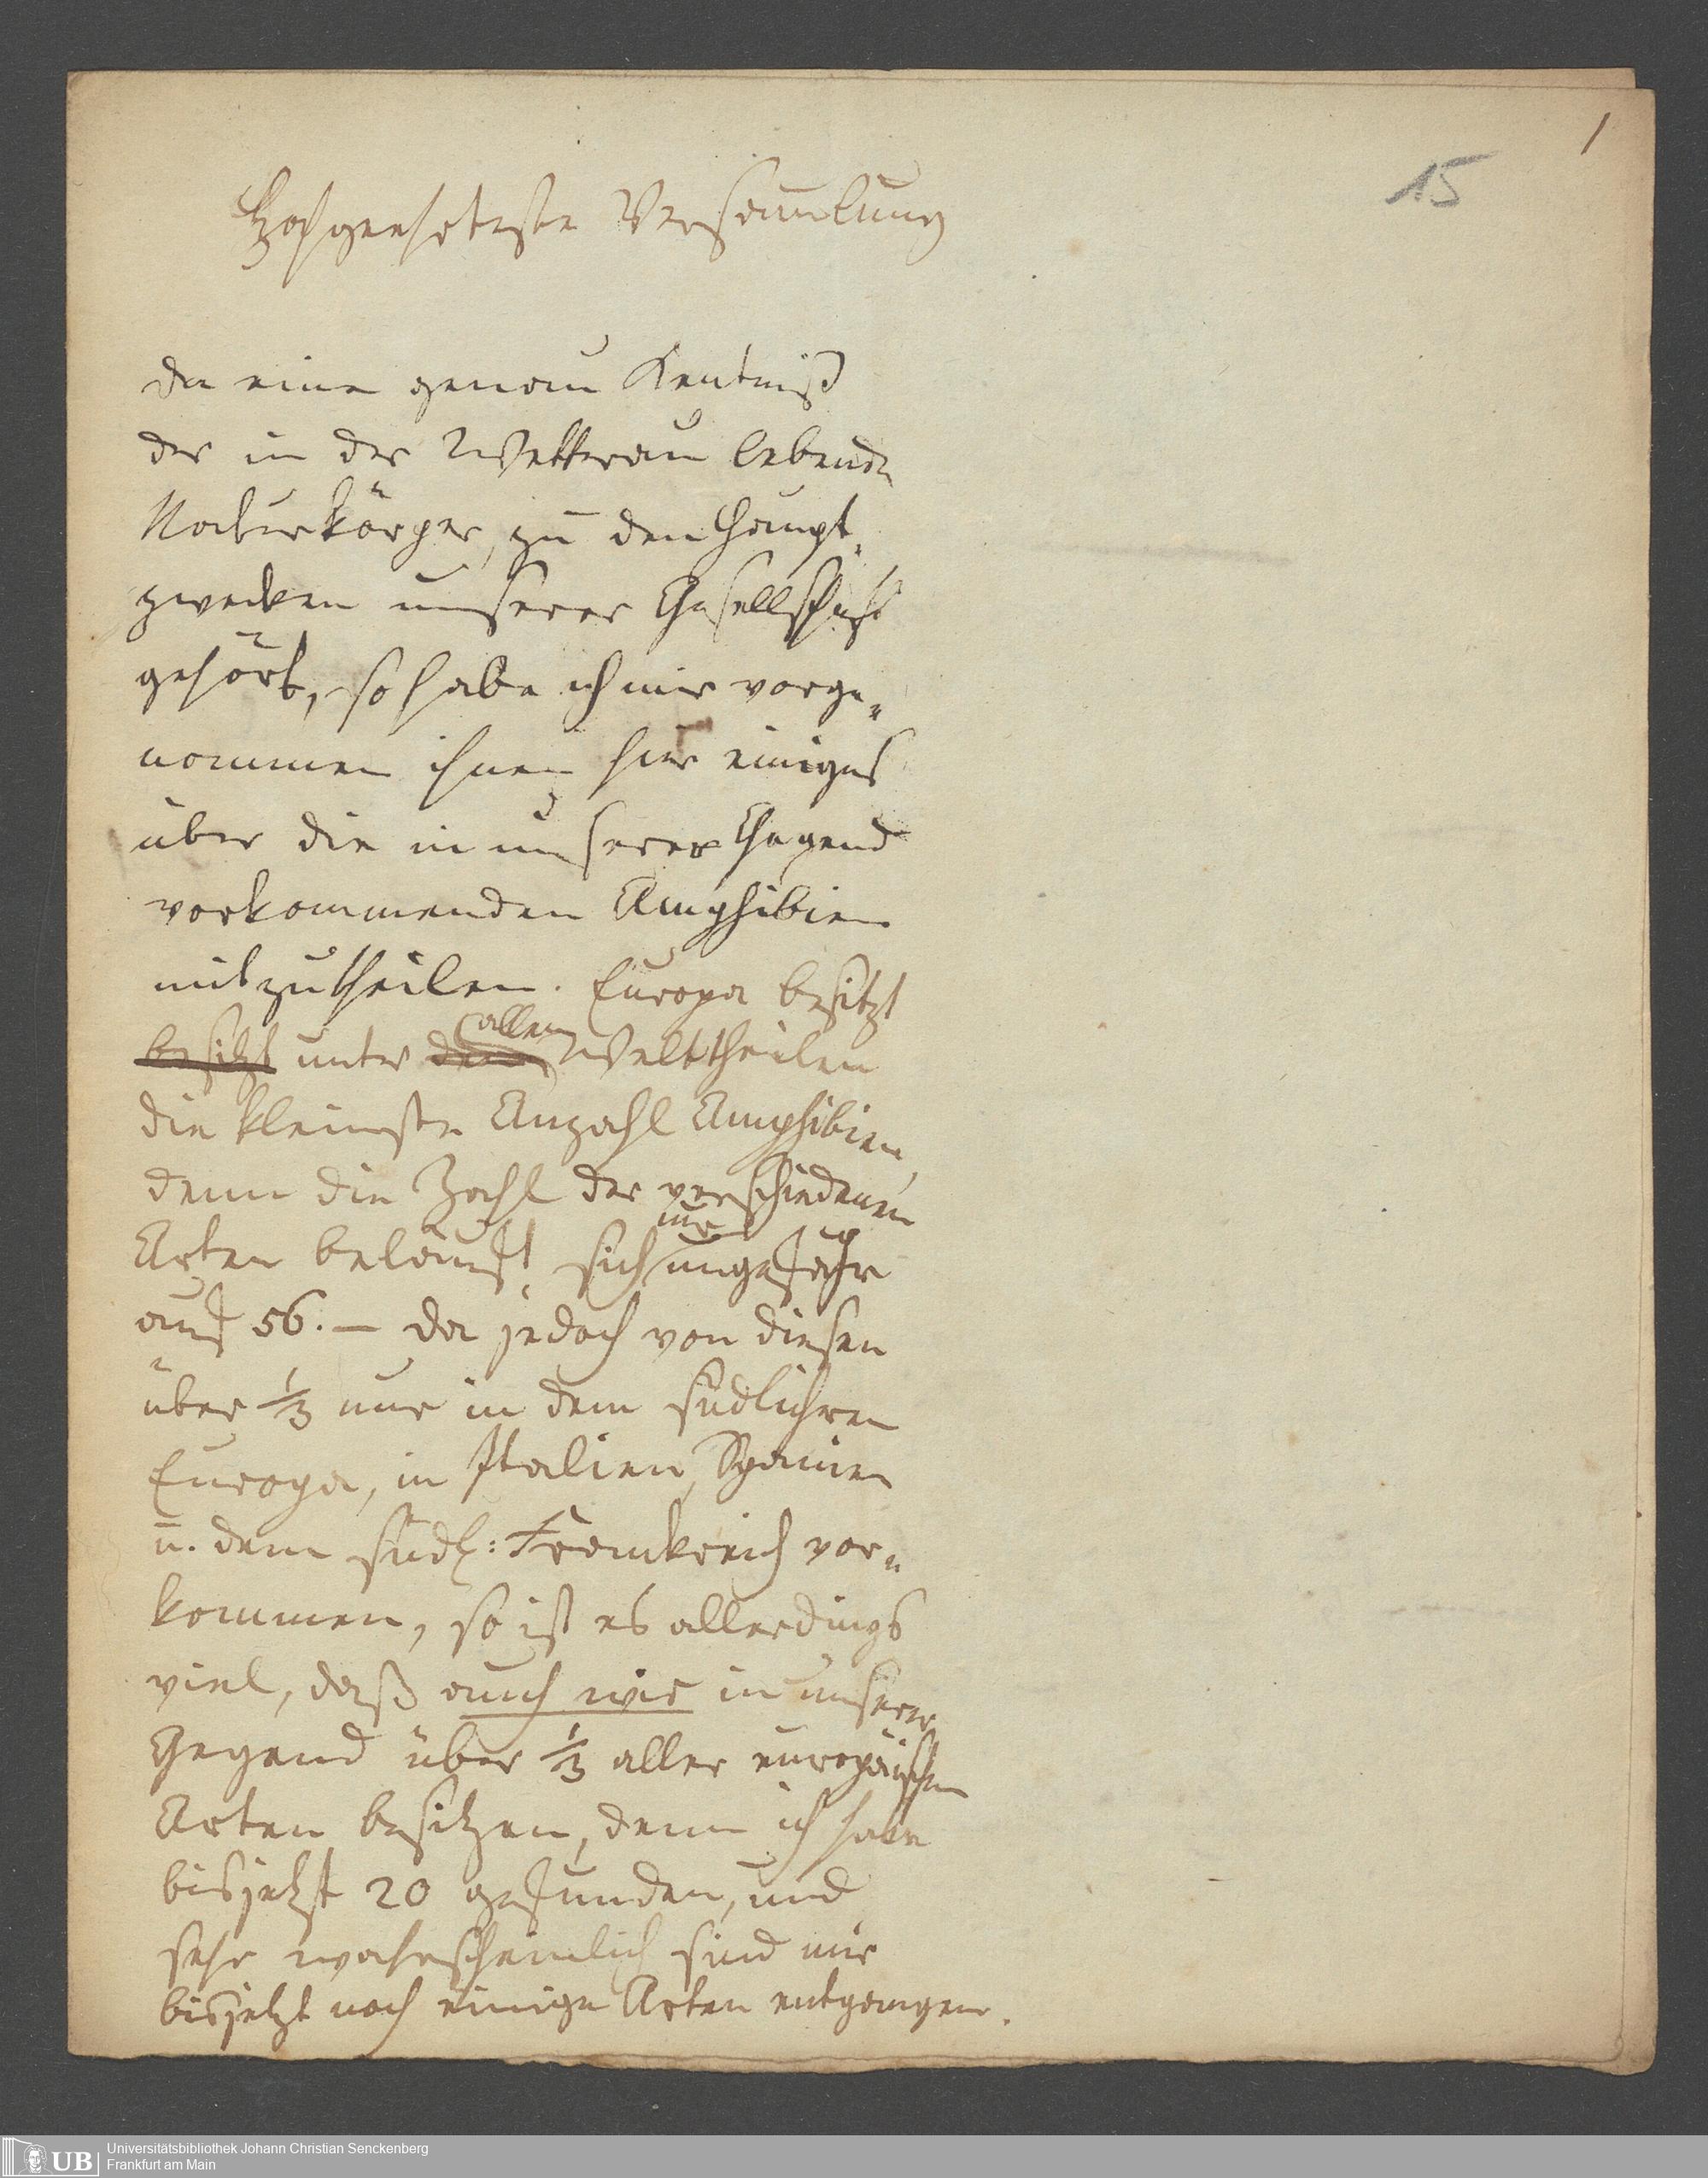 1
15
Hochgeehrteste Versam̅lung
Da eine genaue Kentniß
der in der Wetterau lebenden
Naturkörper, zu den Haupt-
zwecken unserer Gesellschaft
gehört, so habe ich mir vorge-
nommen ihnen hier einiges
über die in unserer Gegend
vorkommenden Amphibien
mitzutheilen. Europa besitzt
besitzt unter den allen Welttheilen
die kleinste Anzahl Amphibien,
denn die Zahl der verschiedenen
Arten beläuft sich nur ungefähr
auf 56. — Da jedoch von diesen
über 1/3 nur in dem südlichen
Europa, in Italien, Spanien
u. dem südl: Frankreich vor-
kommen, so ist es allerdings
viel, daß auch wir in unserer
Gegend über 1/3 aller europäischen
Arten besitzen, denn ich habe
bis jetzt 20 gefunden, und
sehr wahrscheinlich sind mir
bis jetzt noch einige Arten entgangen.
UB
Universitätsbibliothek Johann Christian Senckenberg
Frankfurt am Main